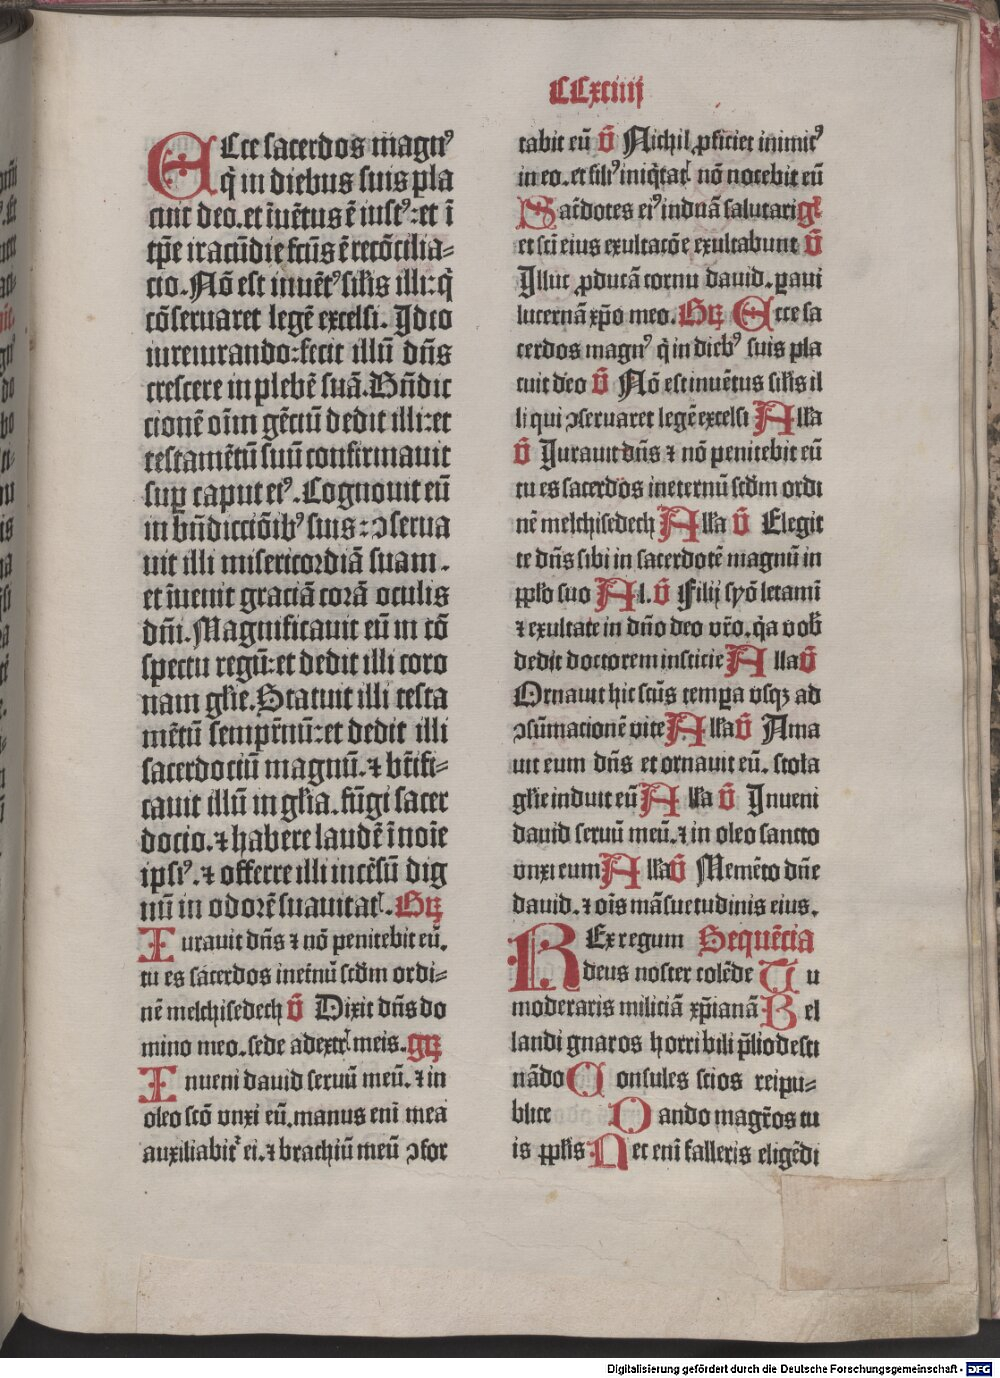 CCxciiij
ECce sacerdos magnꝰ
q̄ in diebus suis pla
cuit deo. et īuētus ē iustꝰ: et ī
tp̄e iracūdie fctūs ē recōcilia⸗
cio. Nō est inuētꝰ silīs illi: q̄
cōseruaret legē excelsi. Jdeo
iureiurando: fecit illū dn̄s
crescere in plebē suā. Bn̄dic
cionē oīm gēciū dedit illi: et
testamētū suū confirmauit
sup caput eiꝰ. Cognouit eū
in bn̄diccōibꝰ suis: ↄserua
uit illi misericordiā suam.
et īuenit graciā corā oculis
dn̄i. Magnificauit eū in cō
spectu regū: et dedit illi coro
nam glīe. Statuit illi testa
mētū sempr̄nū: et dedit illi
sacerdociū magnū. ⁊ bt̄ifi⸗
cauit illū in glīa. fūgi sacer
docio. ⁊ habere laudē ī noīe
ipsiꝰ. ⁊ offerre illi incēsū dig
nū in odorē suauitatꝭ. Gꝝ
Iurauit dn̄s ⁊ nō penitebit eū.
tu es sacerdos inet̄nū scd̄m ordi⸗
nē melchisedech v̄ Dixit dn̄s do
mino meo. sede adextrꝭ meis. gꝝ
Inueni dauid seruū meū. ⁊ in
oleo scō vnxi eū. manus eni mea
auxiliabit̄ ei. ⁊ brachiū meū ↄfor
tabit eū v̄ Nichil ꝓficiet inimicꝰ
in eo. et filiꝰ iniq̄tatꝭ nō nocebit eū
Sac̄dotes eiꝰ induā salutari gͬ
et scī eius exultacōe exultabunt v̄
Jlluc ꝓducā cornu dauid. ꝑaui
lucernā xp̄o meo. Gꝝ Ecce sa
cerdos magnꝰ q̄ in diebꝰ suis pla
cuit deo v̄ Nō est inuētus silīs il
li qui ↄseruaret legē excelsi Alla
v̄ Jurauit dn̄s ⁊ nō penitebit eū
tu es sacerdos ineternū scd̄m ordi
nē melchisedech Alla v̄ Elegit
te dn̄s sibi in sacerdotē magnū in
ppl̄o suo Al. v̄ Filij syō letami
⁊ exultate in dn̄o deo vr̄o. q̄a vob̄
dedit doctorem iusticie Alla v̄
Ornauit hic scūs tempa vsqꝫ ad
ↄsūmacionē vite Alla v̄ Ama
uit eum dn̄s et ornauit eū. stola
glīe induit eū Alla v̄ Jnueni
dauid seruū meū. ⁊ in oleo sancto
vnxi eum Alla v̄ Memēto dn̄e
dauid. ⁊ oīs māsuetudinis eius.
REx regum Sequēcia
deus noster colēde Tu
moderaris militiā xp̄ianā Bel
landi gnaros horribili p̄lio desti
nādo Consules scios reipu⸗
blice Dando magr̄os tu
is ppl̄is Nec eni falleris eligēdi
Digitalisierung gefördert durch die Deutsche Forschungsgemeinschaft - DFG